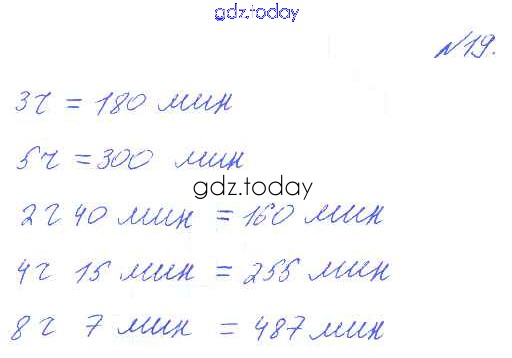 gdz.today
№19.
3ч = 180 мин
5ч = 300 мин
gdz.today
2ч 40 мин = 160 мин
4ч 15 мин = 255 мин
8ч 7 мин = 487 мин